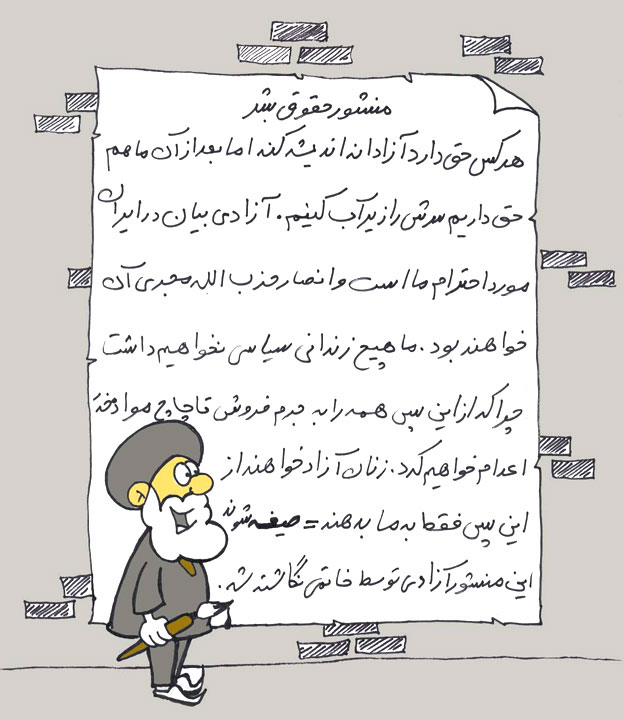 منشور حقوق بشر
هر کس حق دارد آزادانه اندیشه کند اما بعد از آن ما هم
حق داریم سرش را زیر آب کنیم. آزادی بیان در ایران
مورد احترام ما است و انصار حزب الله مجری آن
خواهند بود. ما هیچ زندانی سیاسی نخواهیم داشت
چرا که از این پس همه را به جرم فروش قاچاق مواد مخدّ
اعدام خواهیم کرد. زنان آزاد خواهند از
این پس فقط به ما بدهند = صیغه شوند
این منشور آزادی توسط خاتمی نگاشته شد.